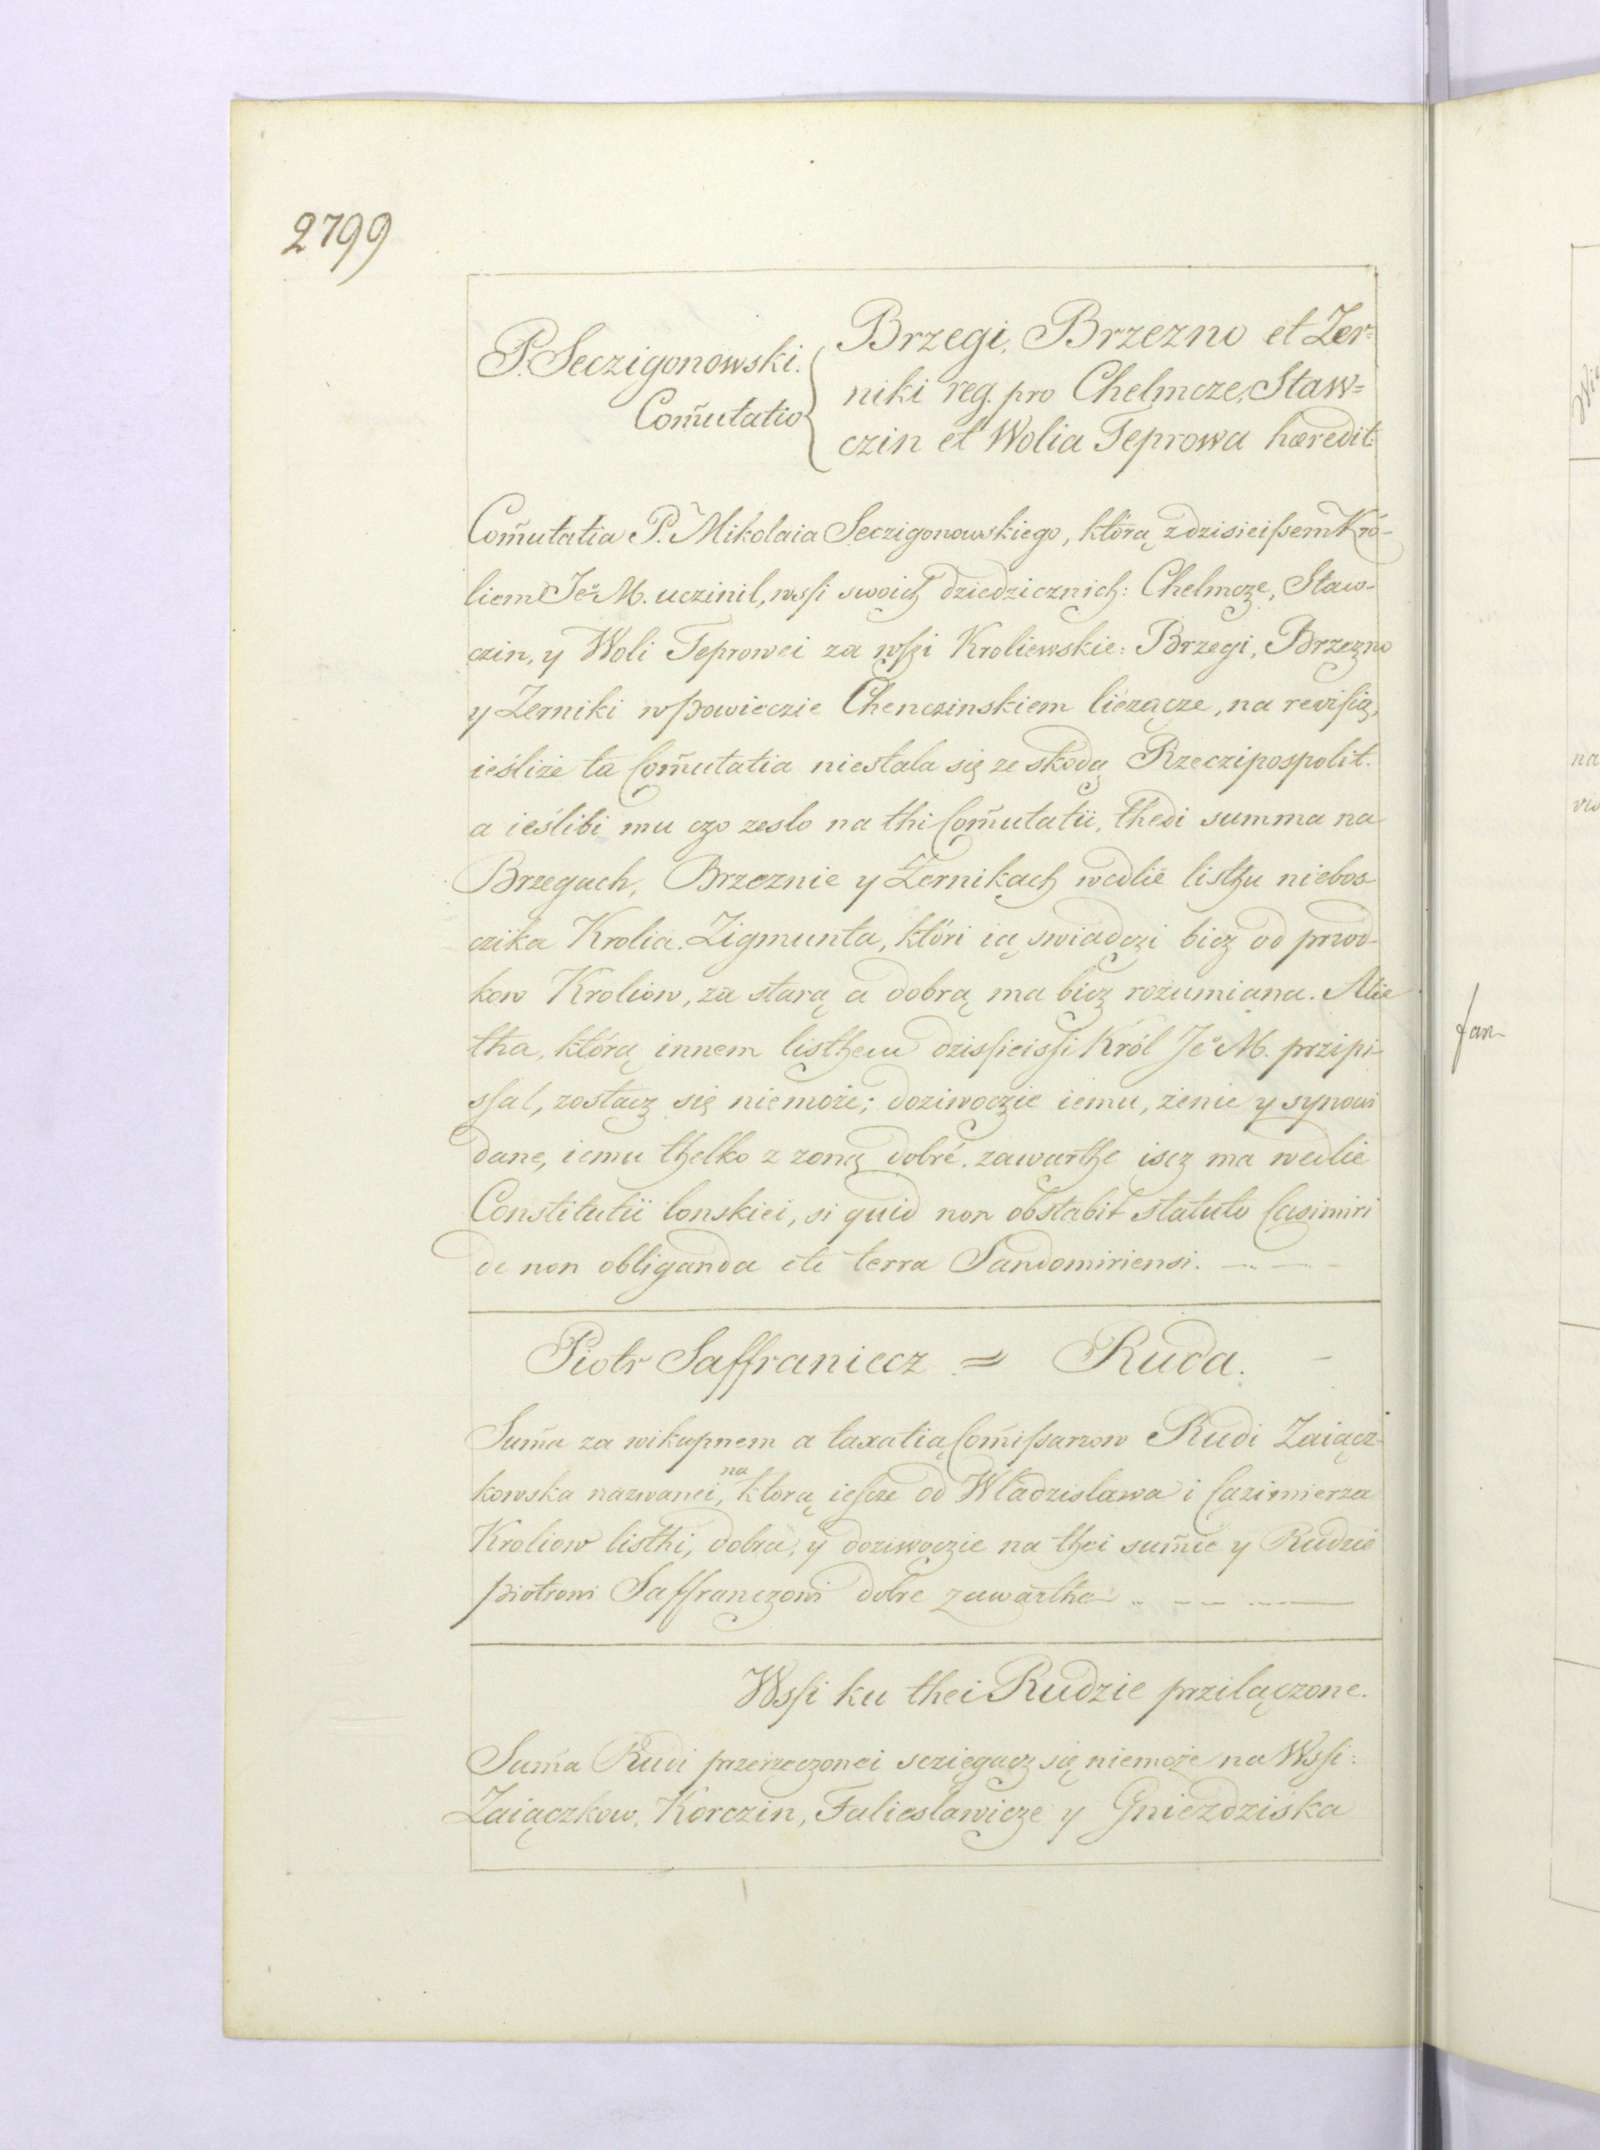 2799
P. Seczigonowski.
Com̃utatio
Brzegi, Brzezno et Zer=
niki reg. pro Chelmcze, Staw=
czin et Wolia Teprowa hæredit:
Com̃utatia P. Mikolaia Seczigonowskiego, którą z dzisieissem Kró-
liem Jeº M. uczinil, wssi swoich dziedzicznich: Chelmcze, Staw-
czin, y Woli Teprowei za wssi Kroliewskie: Brzegi, Brzezno
y Zerniki w powieczie Chenczinskiem liezącze, na revisią,
ieśliże ta Com̃utatia niestala się ze skodą Rzeczipospolit.
a ieślibi mu czo zeslo na thi Com̃utatii, thedi summa na
Brzegach, Brzeznie y Zernikach wedlie listhu niebos
czika Krolia Zigmunta, któri ią swiadczi bicz od przod-
kow Kroliow, za starą a dobrą ma bicz rozumiana. Alie
tha, którą innem listhem dzissieissi Król Jeº M. przipi-
ssal, zostacz się niemoże; doziwoczie iemu, żenie y synowi
dane, iemu thelko z zoną dobré zawarthe iscz ma wedlie
Constitutii lonskiei, si quid non obstabit statuto Casimiri
de non obliganda etc terra Sandomiriensi.
Piotr Saffraniecz = Ruda.
Sum̃a za wikupnem a taxatią Com̃issarzow Rudi Zaiącz-
kowska nazwanei, na którą iescze od Wladzislawa i Cazimierza
Kroliow listhi, dobra, y doziwoczie na thei sum̃ie y Rudzie
Piotrowi Saffranczowi dobre zawarthe
Wssi ku thei Rudzie przilączone.
Sum̃a Rudi przerzeczonei scziągacz się niemoże na Wssi:
Zaiączkow, Korczin, Falieslawicze y Gniezdziska
fan
na